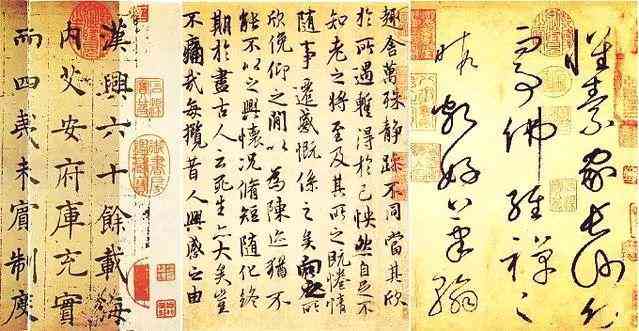 懷素家長沙幼
而事佛經禪之
暇頗好筆翰
趣舍萬殊静躁不同當其欣
於所遇蹔得於己怏然自足不
知老之將至及其所之既惓情
隨事遷感慨係之矣向之所
欣俛仰之閒以爲陳迹猶不
能不以之興懷況脩短隨化終
期於盡古人云死生亦大矣豈
不痛哉每攬昔人興感之由
漢興六十餘載海
內艾安府庫充實
而四夷未賓制度